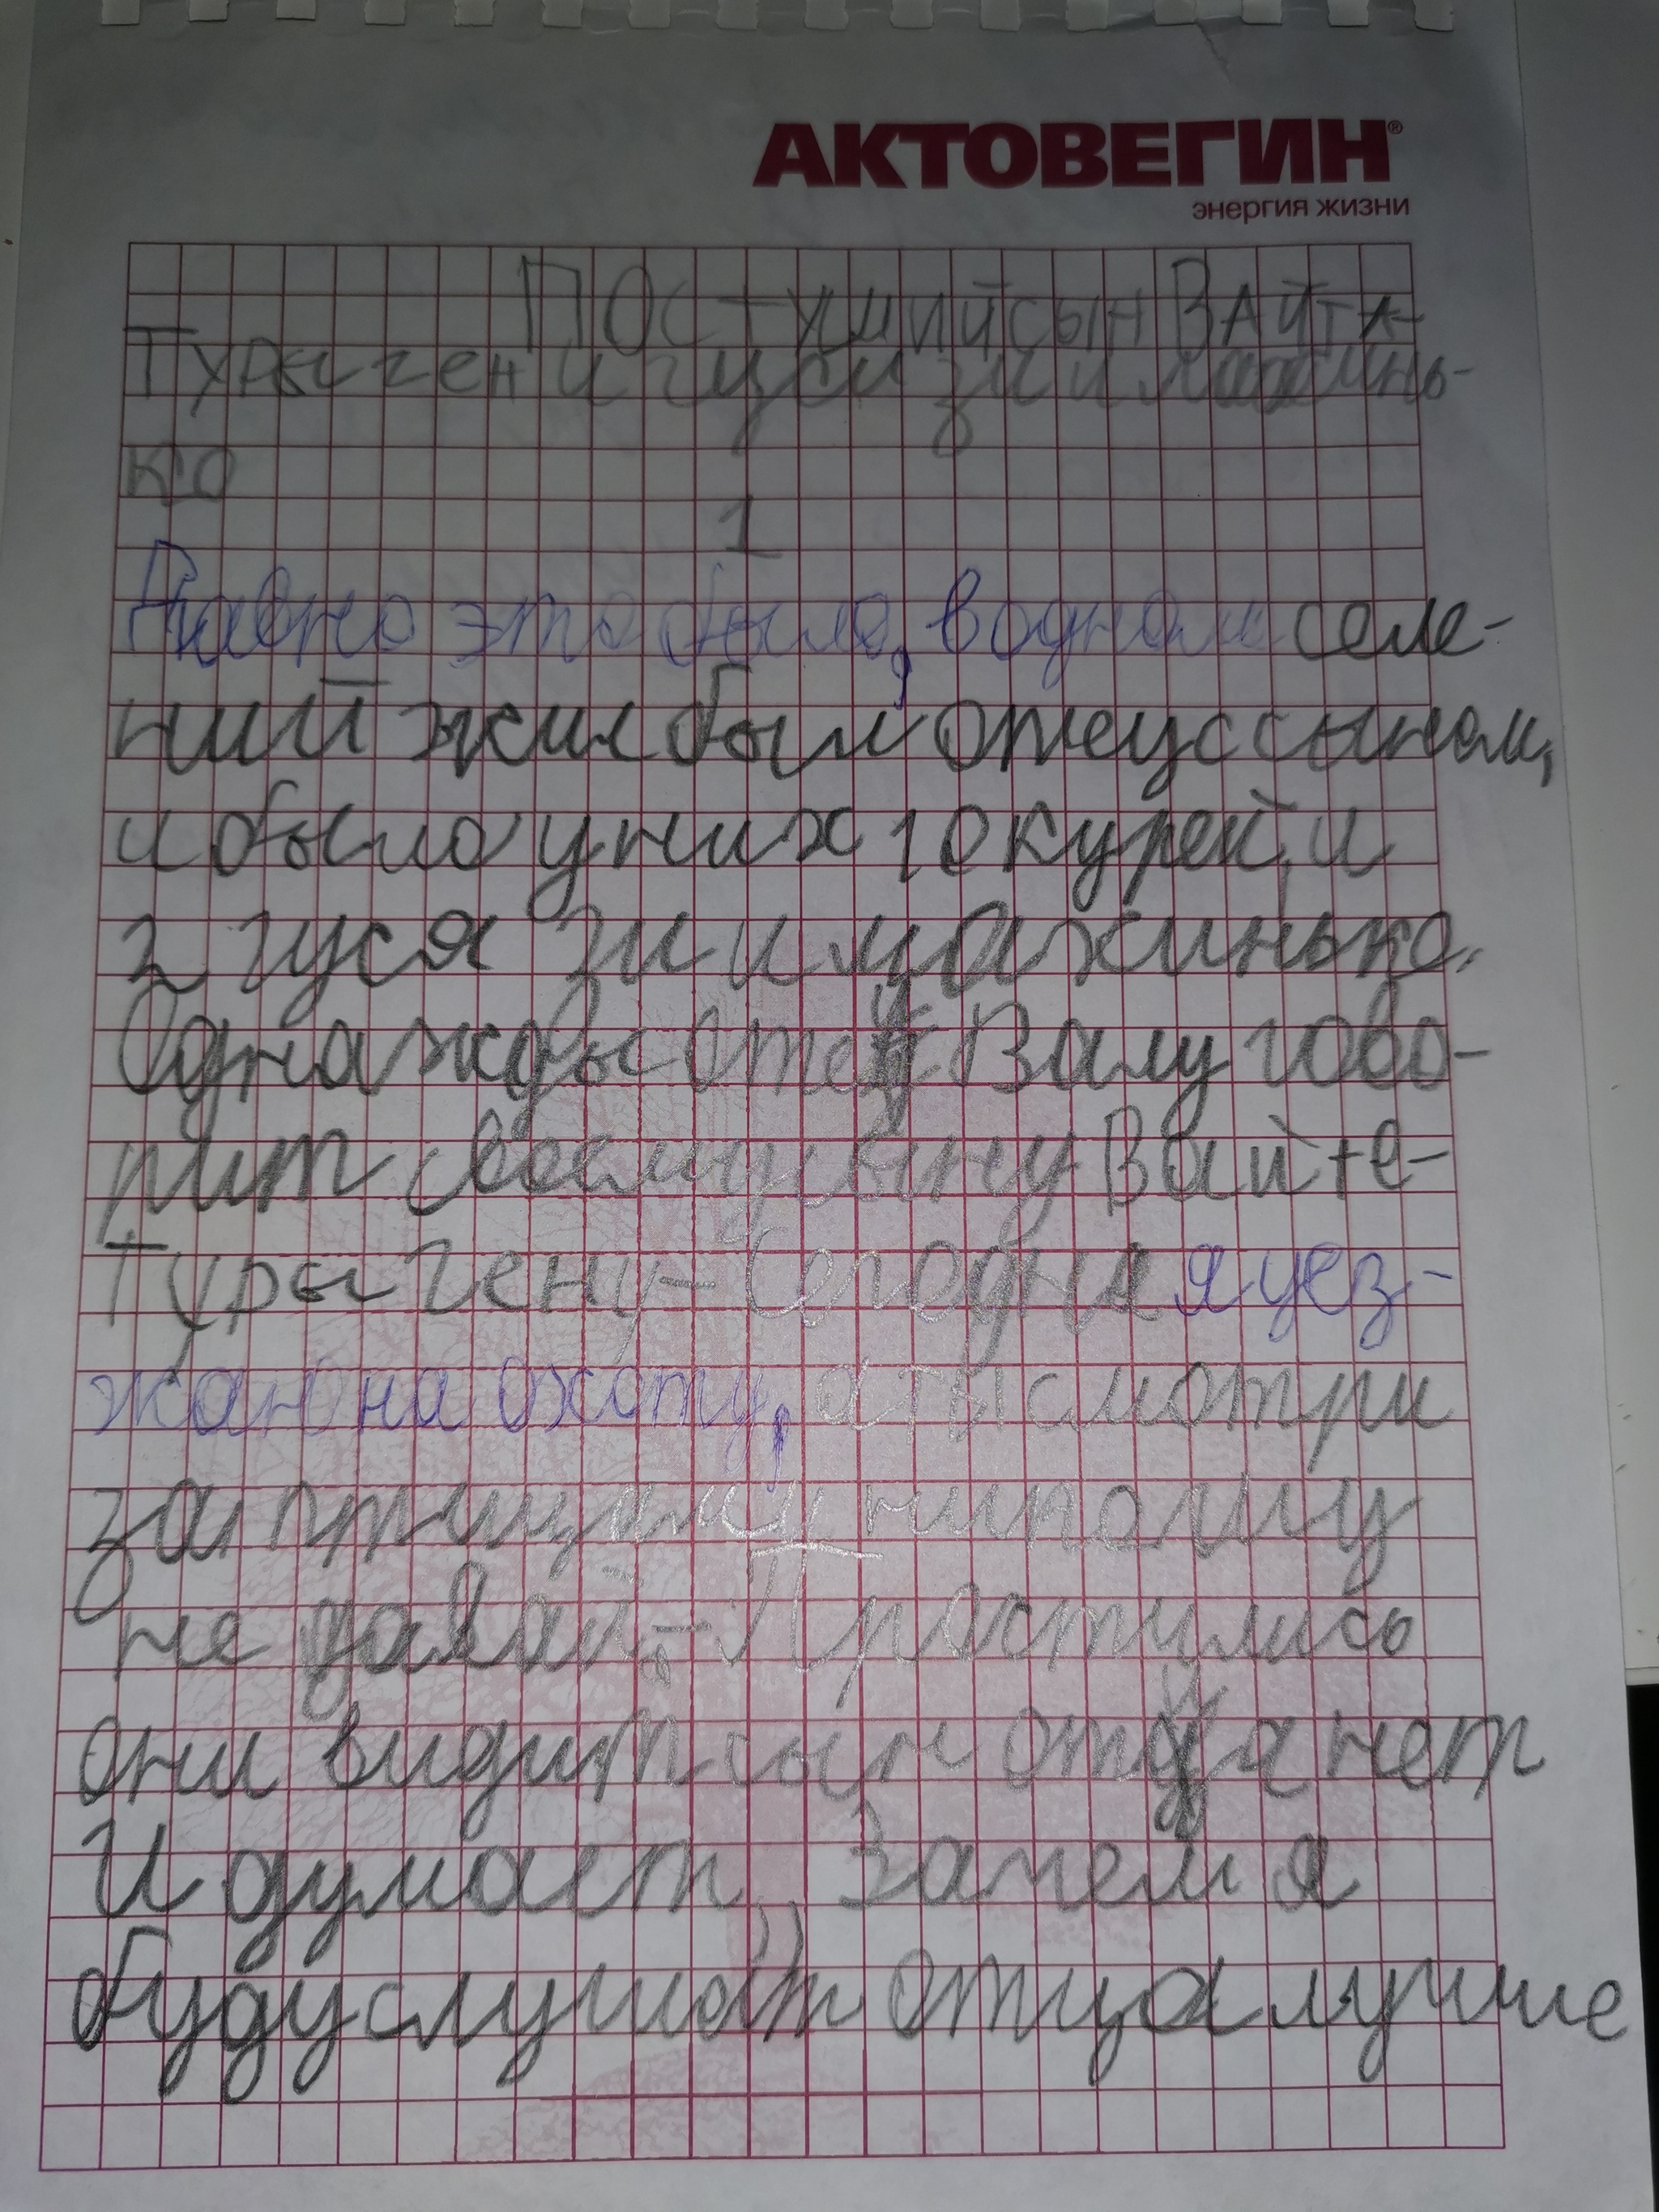 АКТОВЕГИН®
энергия жизни
Постуший сын Вайта-
Турыген и гуси зи и мажинь-
ко
1
Давно это было, в одном селе-
ний жил был отец с сыном,
и было у них 10 курей, и
2 гуся зи и мажинько.
Однажды отец Валу гово-
рит своему сыну Вайте-
Турыгену - Сегодня я уез-
жаю на охоту, а ты смотри
за птицами никому
не давай - Простились
они видит сын отца нет
И думает, Зачем я
буду слушат отца лучше